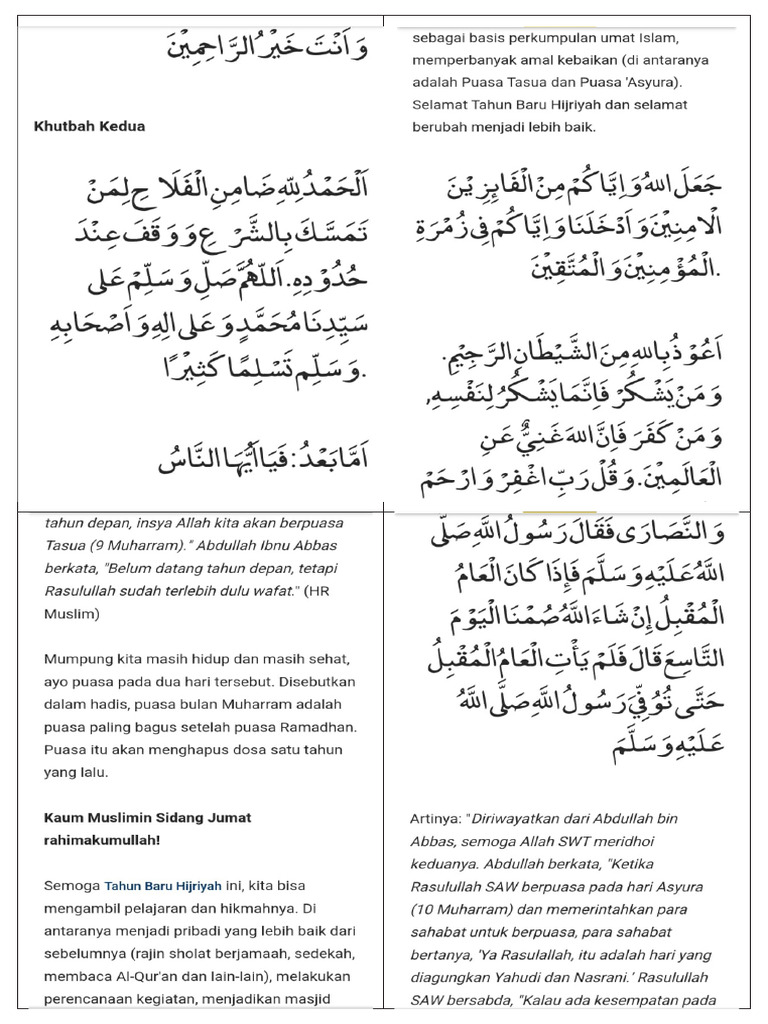 وَاَنْتَ خَيْرُ الرَّاحِمِيْنَ
Khutbah Kedua
اَلْحَمْدُ لِلّٰهِ ضَامِنِ الْفَلَاحِ لِمَنْ
تَمَسَّكَ بِالشَّرْعِ وَوَقَفَ عِنْدَ
حُدُوْدِهِ. اَللّٰهُمَّ صَلِّ وَسَلِّمْ عَلٰى
سَيِّدِنَا مُحَمَّدٍ وَعَلٰى اٰلِهِ وَاَصْحَابِهِ
وَسَلِّم تَسْلِمًا كَثِيْرًا.
اَمَّا بَعْدُ: فَيَا اَيُّهَا النَّاسُ
sebagai basis perkumpulan umat Islam,
memperbanyak amal kebaikan (di antaranya
adalah Puasa Tasua dan Puasa 'Asyura).
Selamat Tahun Baru Hijriyah dan selamat
berubah menjadi lebih baik.
جَعَلَ اللهُ وَاِيَّاكُمْ مِنْ الْفَائِزِيْنَ
الْامِنِيْنَ وَاَدْخَلَنَا وَاِيَّاكُمْ فِى زُمْرَةِ
الْمُؤْمِنِيْنَ وَالْمُتَّقِيْنَ.
اَعُوْذُ بِاللهِ مِنَ الشَّيْطَانِ الرَّجِيْمِ.
وَمَنْ يَشْكُرْ فَاِنَّمَا يَشْكُرُ لِنَفْسِهِ,
وَمَنْ كَفَرَ فَاِنَّ اللهَ غَنِيٌّ عَنِ
الْعَالَمِيْنَ. وَقُلْ رَبِّ اغْفِرْ وَارْحَمْ
tahun depan, insya Allah kita akan berpuasa
Tasua (9 Muharram)." Abdullah Ibnu Abbas
berkata, "Belum datang tahun depan, tetapi
Rasulullah sudah terlebih dulu wafat." (HR
Muslim)
Mumpung kita masih hidup dan masih sehat,
ayo puasa pada dua hari tersebut. Disebutkan
dalam hadis, puasa bulan Muharram adalah
puasa paling bagus setelah puasa Ramadhan.
Puasa itu akan menghapus dosa satu tahun
yang lalu.
Kaum Muslimin Sidang Jumat
rahimakumullah!
Semoga Tahun Baru Hijriyah ini, kita bisa
mengambil pelajaran dan hikmahnya. Di
antaranya menjadi pribadi yang lebih baik dari
sebelumnya (rajin sholat berjamaah, sedekah,
membaca Al-Qur'an dan lain-lain), melakukan
perencanaan kegiatan, menjadikan masjid
وَالنَّصَارَى فَقَالَ رَسُولُ اللَّهِ صَلَّى
اللَّهُ عَلَيْهِ وَسَلَّمَ فَإِذَا كَانَ الْعَامُ
الْمُقْبِلُ إِنْ شَاءَ اللَّهُ صُمْنَا الْيَوْمَ
التَّاسِعَ قَالَ فَلَمْ يَأْتِ الْعَامُ الْمُقْبِلُ
حَتَّى تُوُفِّيَ رَسُولُ اللَّهِ صَلَّى اللَّهُ
عَلَيْهِ وَسَلَّمَ
Artinya: "Diriwayatkan dari Abdullah bin
Abbas, semoga Allah SWT meridhoi
keduanya. Abdullah berkata, "Ketika
Rasulullah SAW berpuasa pada hari Asyura
(10 Muharram) dan memerintahkan para
sahabat untuk berpuasa, para sahabat
bertanya, 'Ya Rasulallah, itu adalah hari yang
diagungkan Yahudi dan Nasrani.' Rasulullah
SAW bersabda, "Kalau ada kesempatan pada